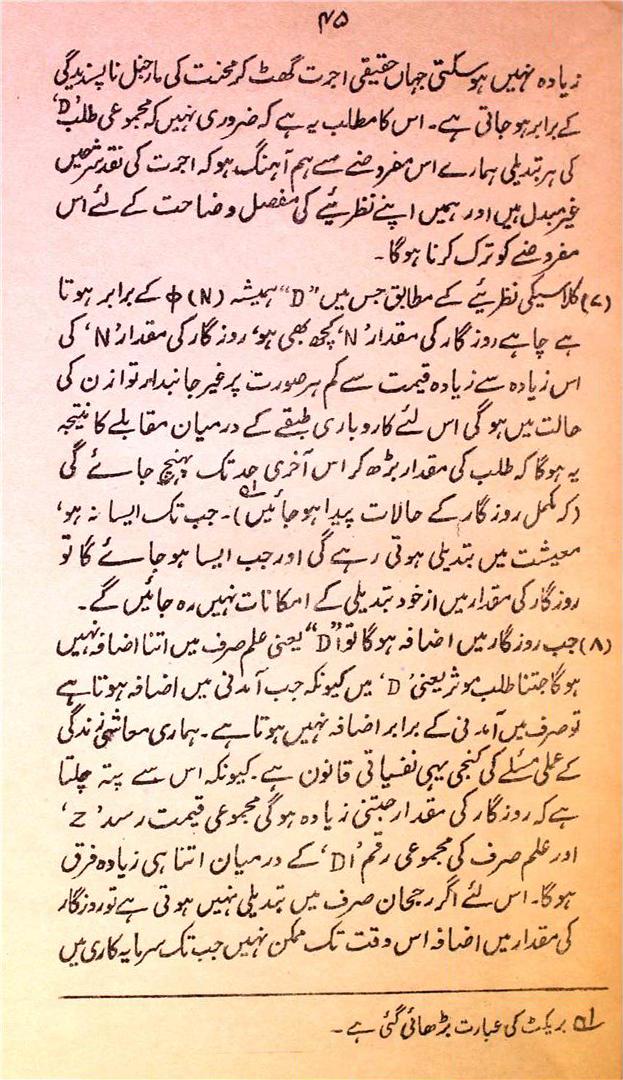 ۴۵
زیادہ نہیں ہو سکتی جہاں حقیقی اجرت گھٹ کر محنت کی مارجنل ناپسندیدگی
کے برابر ہو جاتی ہے۔ اس کا مطلب یہ ہے کہ ضروری نہیں کہ مجموعی طلب 'D'
کی ہر تبدیلی ہمارے اس مفروضے سے ہم آہنگ ہو کہ اجرت کی نقد شرحیں
غیر مبدل ہیں اور ہمیں اپنے نظریئے کی مفصل وضاحت کے لئے اس
مفروضے کو ترک کرنا ہوگا۔
(۷) کلاسیکی نظریئے کے مطابق جس میں "D" ہمیشہ φ(N) کے برابر ہوتا
ہے چاہے روزگار کی مقدار 'N' کچھ بھی ہو، روزگار کی مقدار 'N' کی
اس زیادہ سے زیادہ قیمت سے کم ہر صورت پر غیر جانبدار توازن کی
حالت میں ہوگی اس لئے کاروباری طبقے کے درمیان مقابلے کا نتیجہ
یہ ہوگا کہ طلب کی مقدار بڑھ کر اس آخری حد تک پہنچ جائے گی
(کہ مکمل روزگار کے حالات پیدا ہو جائیں)۱ے۔ جب تک ایسا نہ ہو،
معیشت میں تبدیلی ہوتی رہے گی اور جب ایسا ہو جائے گا تو
روزگار کی مقدار میں ازخود تبدیلی کے امکانات نہیں رہ جائیں گے۔
(۸) جب روزگار میں اضافہ ہوگا تو "D۱" یعنی علم صرف میں اتنا اضافہ نہیں
ہوگا جتنا طلب موثر یعنی 'D' میں کیونکہ جب آمدنی میں اضافہ ہوتا ہے
تو صرف میں آمدنی کے برابر اضافہ نہیں ہوتا ہے۔ ہماری معاشی زندگی
کے عملی مسئلے کی کنجی یہی نفسیاتی قانون ہے۔ کیونکہ اس سے پتہ چلتا
ہے کہ روزگار کی مقدار جتنی زیادہ ہوگی مجموعی قیمت رسد 'Z'
اور علم صرف کی مجموعی رقم 'D۱' کے درمیان اتنا ہی زیادہ فرق
ہوگا۔ اس لئے اگر رجحان صرف میں تبدیلی نہیں ہوتی ہے تو روزگار
کی مقدار میں اضافہ اس وقت تک ممکن نہیں جب تک سرمایہ کاری میں
۱ے بریکٹ کی عبارت بڑھائی گئی ہے۔